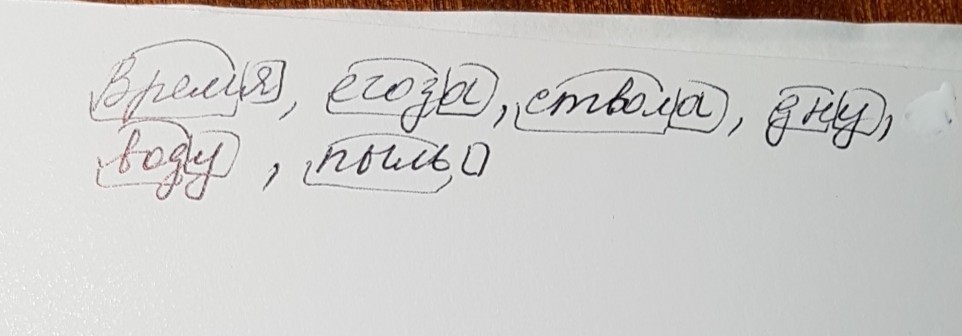 Время, егоза, ствола, дну,
воду, пыль